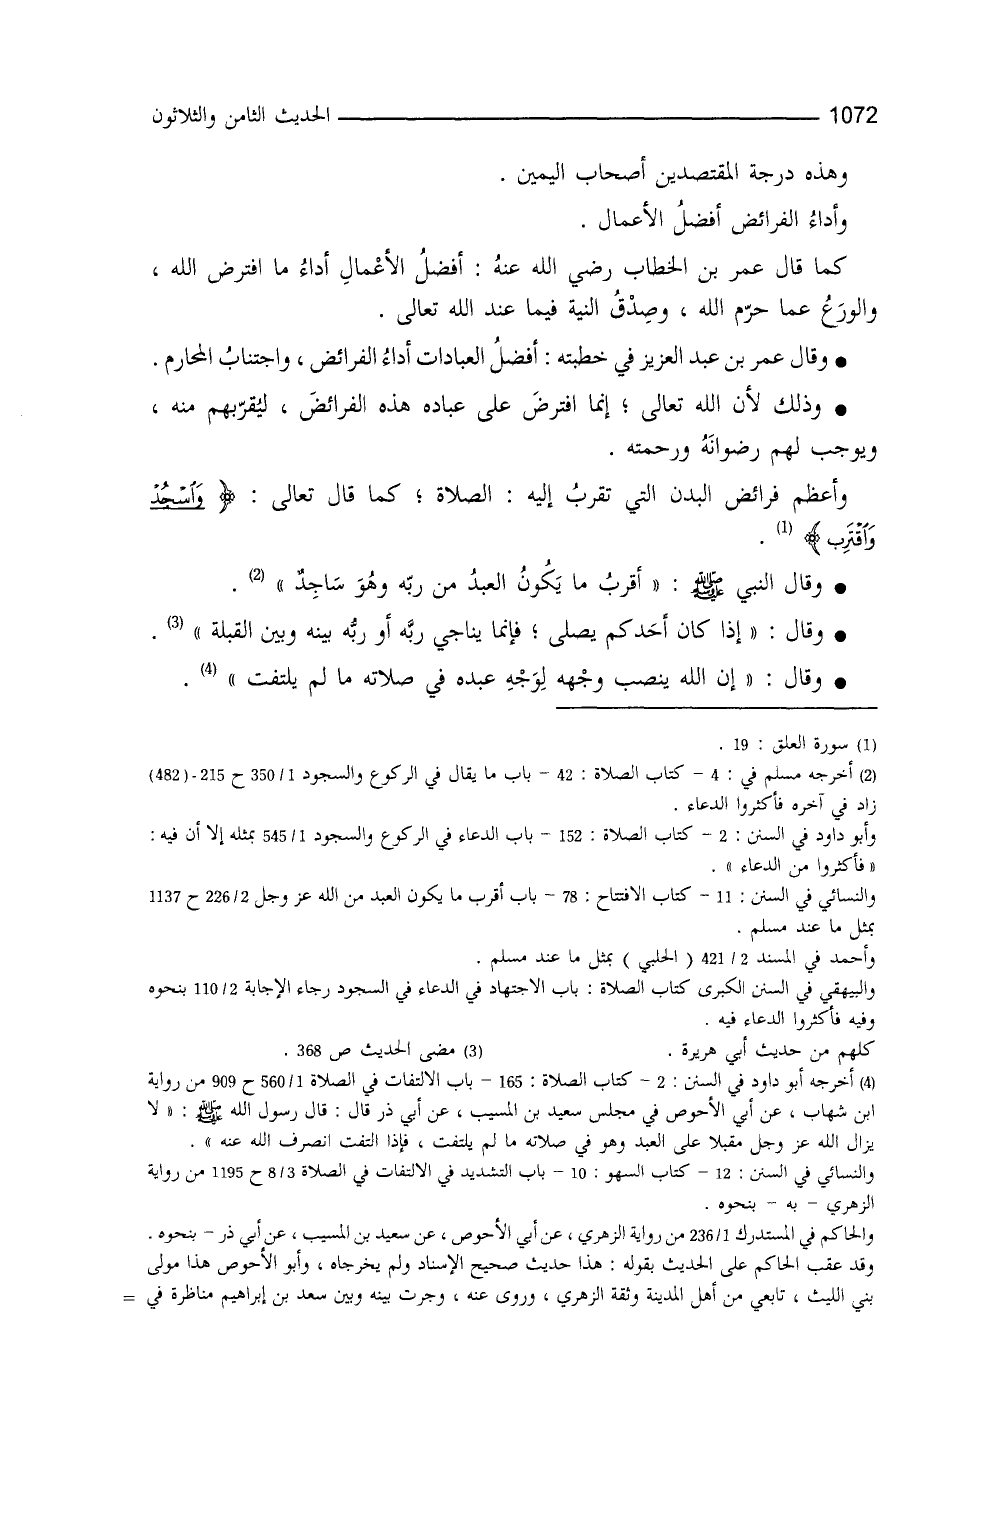 1072 الحديث الثامن والثلاثون
وهذه درجة المقتصدين أصحاب اليمين .
وأداءُ الفرائض أفضلُ الأعمال .
كما قال عمر بن الخطاب رضي الله عنهُ : أفضلُ الأعْمالِ أداءُ ما افترض الله ،
والورَعُ عما حرّم الله ، وصِدْقُ النية فيما عند الله تعالى .
● وقال عمر بن عبد العزيز في خطبته : أفضلُ العبادات أداءُ الفرائض ، واجتنابُ المحارم .
● وذلك لأن الله تعالى ؛ إنما افترضَ على عباده هذه الفرائضَ ، ليُقرّبهم منه ،
ويوجب لهم رضوانَهُ ورحمته .
وأعظم فرائض البدن التي تقربُ إليه : الصلاة ؛ كما قال تعالى : ﴿ وَٱسْجُدْ
وَٱقْتَرِب ﴾ (1) .
● وقال النبي ﷺ : « أقربُ ما يَكُونُ العبدُ من ربّه وهُوَ سَاجِدٌ » (2) .
● وقال : « إذا كان أحَدكم يصلى ؛ فإنما يناجي ربَّه أو ربُّه بينه وبين القبلة » (3) .
● وقال : « إن الله ينصب وجْهه لِوَجْهِ عبده في صلاته ما لم يلتفت » (4) .
(1) سورة العلق : 19 .
(2) أخرجه مسلم في : 4 – كتاب الصلاة : 42 – باب ما يقال في الركوع والسجود 350/1 ح 215-(482)
زاد في آخره فأكثروا الدعاء .
وأبو داود في السنن : 2 – كتاب الصلاة : 152 – باب الدعاء في الركوع والسجود 545/1 بمثله إلا أن فيه :
« فأكثروا من الدعاء » .
والنسائي في السنن : 11 – كتاب الافتتاح : 78 – باب أقرب ما يكون العبد من الله عز وجل 226/2 ح 1137
بمثل ما عند مسلم .
وأحمد في المسند 2 / 421 ( الحلبي ) بمثل ما عند مسلم .
والبيهقي في السنن الكبرى كتاب الصلاة : باب الاجتهاد في الدعاء في السجود رجاء الإجابة 110/2 بنحوه
وفيه فأكثروا الدعاء فيه .
كلهم من حديث أبي هريرة . (3) مضى الحديث ص 368 .
(4) أخرجه أبو داود في السنن : 2 – كتاب الصلاة : 165 – باب الالتفات في الصلاة 560/1 ح 909 من رواية
ابن شهاب ، عن أبي الأحوص في مجلس سعيد بن المسيب ، عن أبي ذر قال : قال رسول الله ﷺ : « لا
يزال الله عز وجل مقبلا على العبد وهو في صلاته ما لم يلتفت ، فإذا التفت انصرف الله عنه » .
والنسائي في السنن : 12 – كتاب السهو : 10 – باب التشديد في الالتفات في الصلاة 8/3 ح 1195 من رواية
الزهري – به – بنحوه .
والحاكم في المستدرك 236/1 من رواية الزهري ، عن أبي الأحوص ، عن سعيد بن المسيب ، عن أبي ذر – بنحوه .
وقد عقب الحاكم على الحديث بقوله : هذا حديث صحيح الإسناد ولم يخرجاه ، وأبو الأحوص هذا مولى
بني الليث ، تابعي من أهل المدينة وثقة الزهري ، وروى عنه ، وجرت بينه وبين سعد بن إبراهيم مناظرة في =